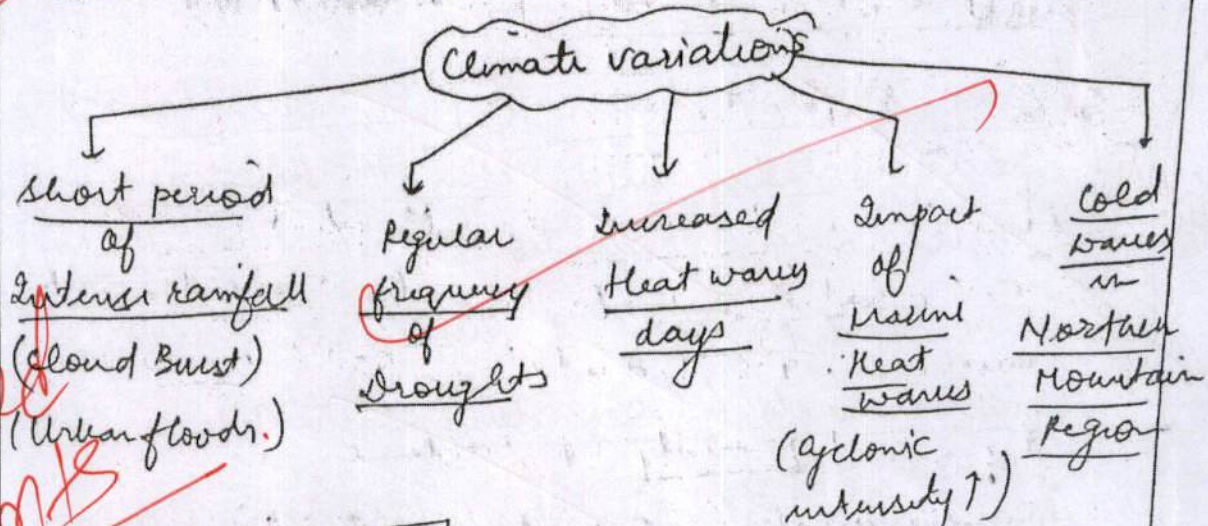 Climate variations
Short period
of
Intense rainfall
(Cloud Burst)
(Urban floods.)
Regular
frequency
of
Droughts
Increased
Heat waves
days
Impact
of
Marine
Heat
waves
(Cyclonic
intensity ↑)
Cold
waves
in
Northern
Mountain
Region